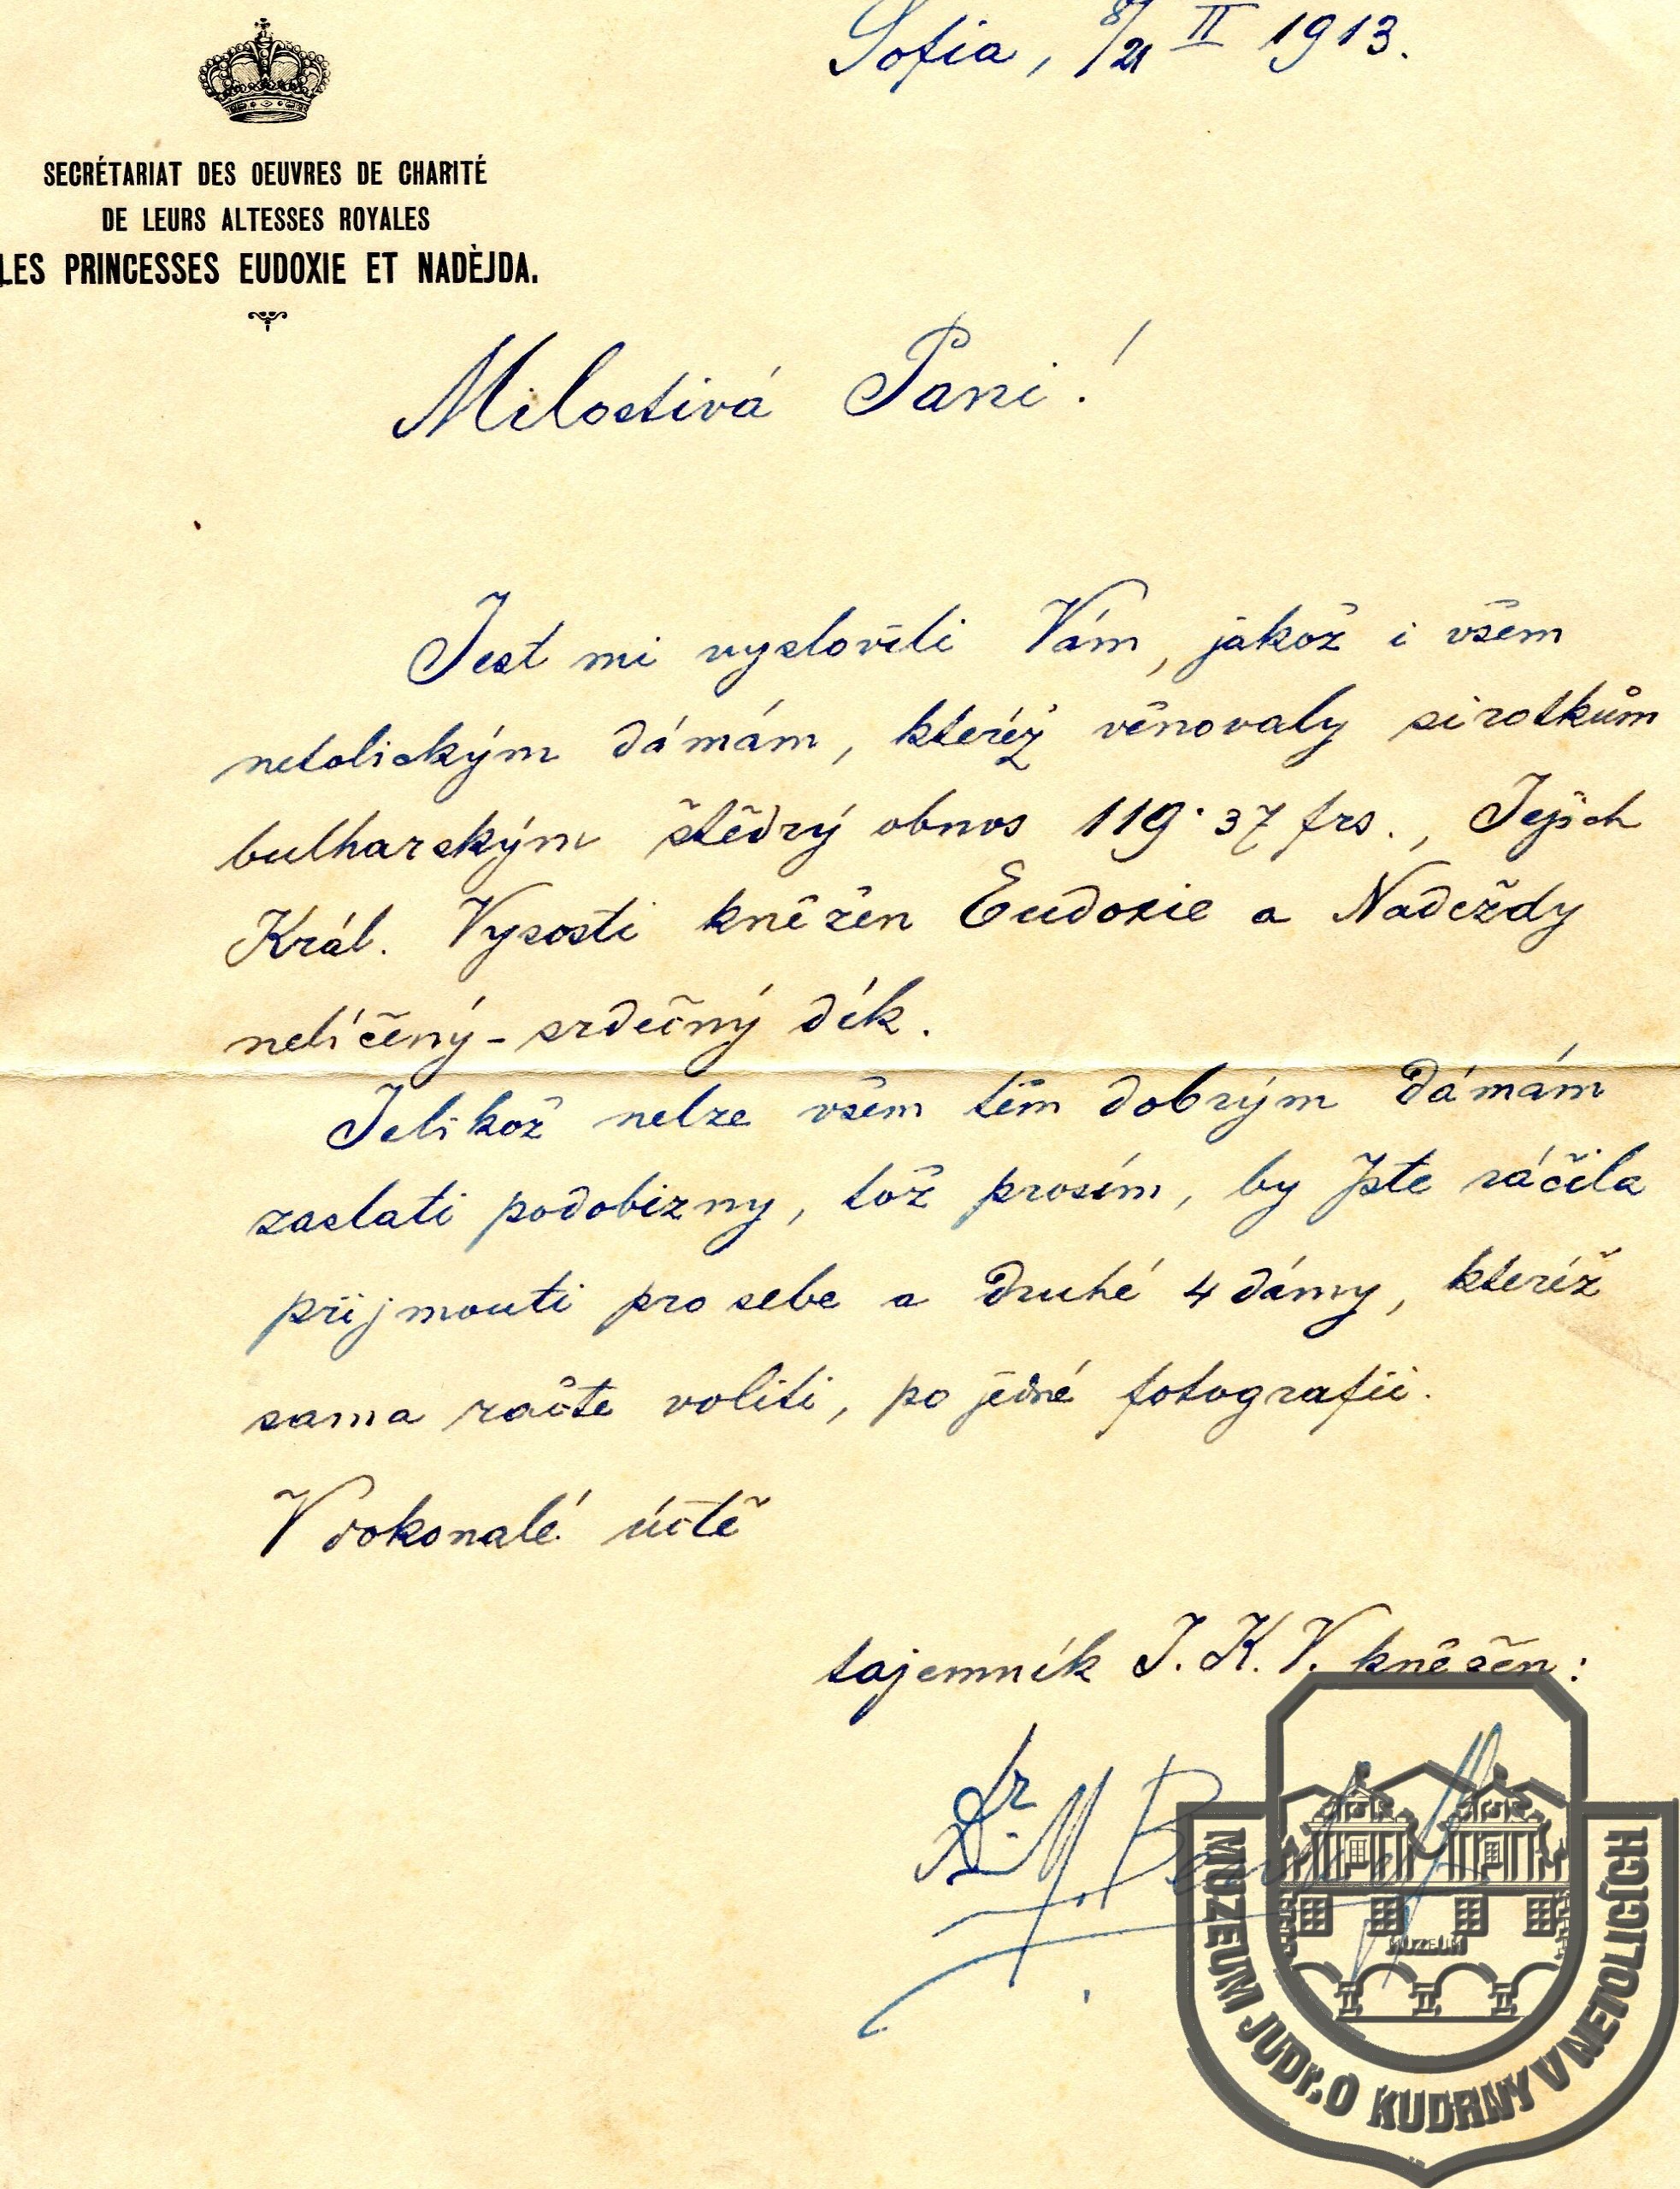 Sofia, 8/21 II 1913.
SECRÉTARIAT DES OEUVRES DE CHARITÉ
DE LEURS ALTESSES ROYALES
LES PRINCESSES EUDOXIE ET NADÈJDA.
Milostivá Paní!
Jest mi vysloviti Vám, jakož i všem
netolickým dámám, kteréž věnovaly sirotkům
bulharským štědrý obnos 119·37 frs., Jejich
Král. Vysosti kněžen Eudoxie a Naděždy
nelíčený - srdečný dík.
Jelikož nelze všem těm dobrým dámám
zaslati podobizny, tož prosím, by Jste ráčila
přijmouti pro sebe a druhé 4 dámy, kteréž
sama račte voliti, po jedné fotografii.
V dokonalé úctě
tajemník J. K. V. kněžen:
Dr. M.
MUZEUM
MUZEUM JUDr. O KUDRNY V NETOLICÍCH